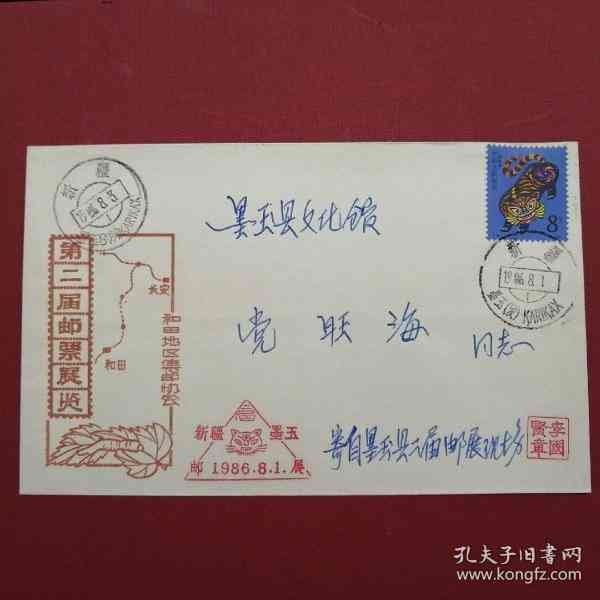 新疆
1986.8.3
墨玉(支)KARIKAX
8
新疆
1986.8.1
墨玉(支)KARIKAX
墨玉县文化馆
党旺海 同志
寄自墨玉县二届邮展现场
第二届邮票展览
长安
和田
和田地区集邮协会
新疆 墨玉
邮 1986.8.1. 展
李国贤章
孔夫子旧书网
www.kongfz.com